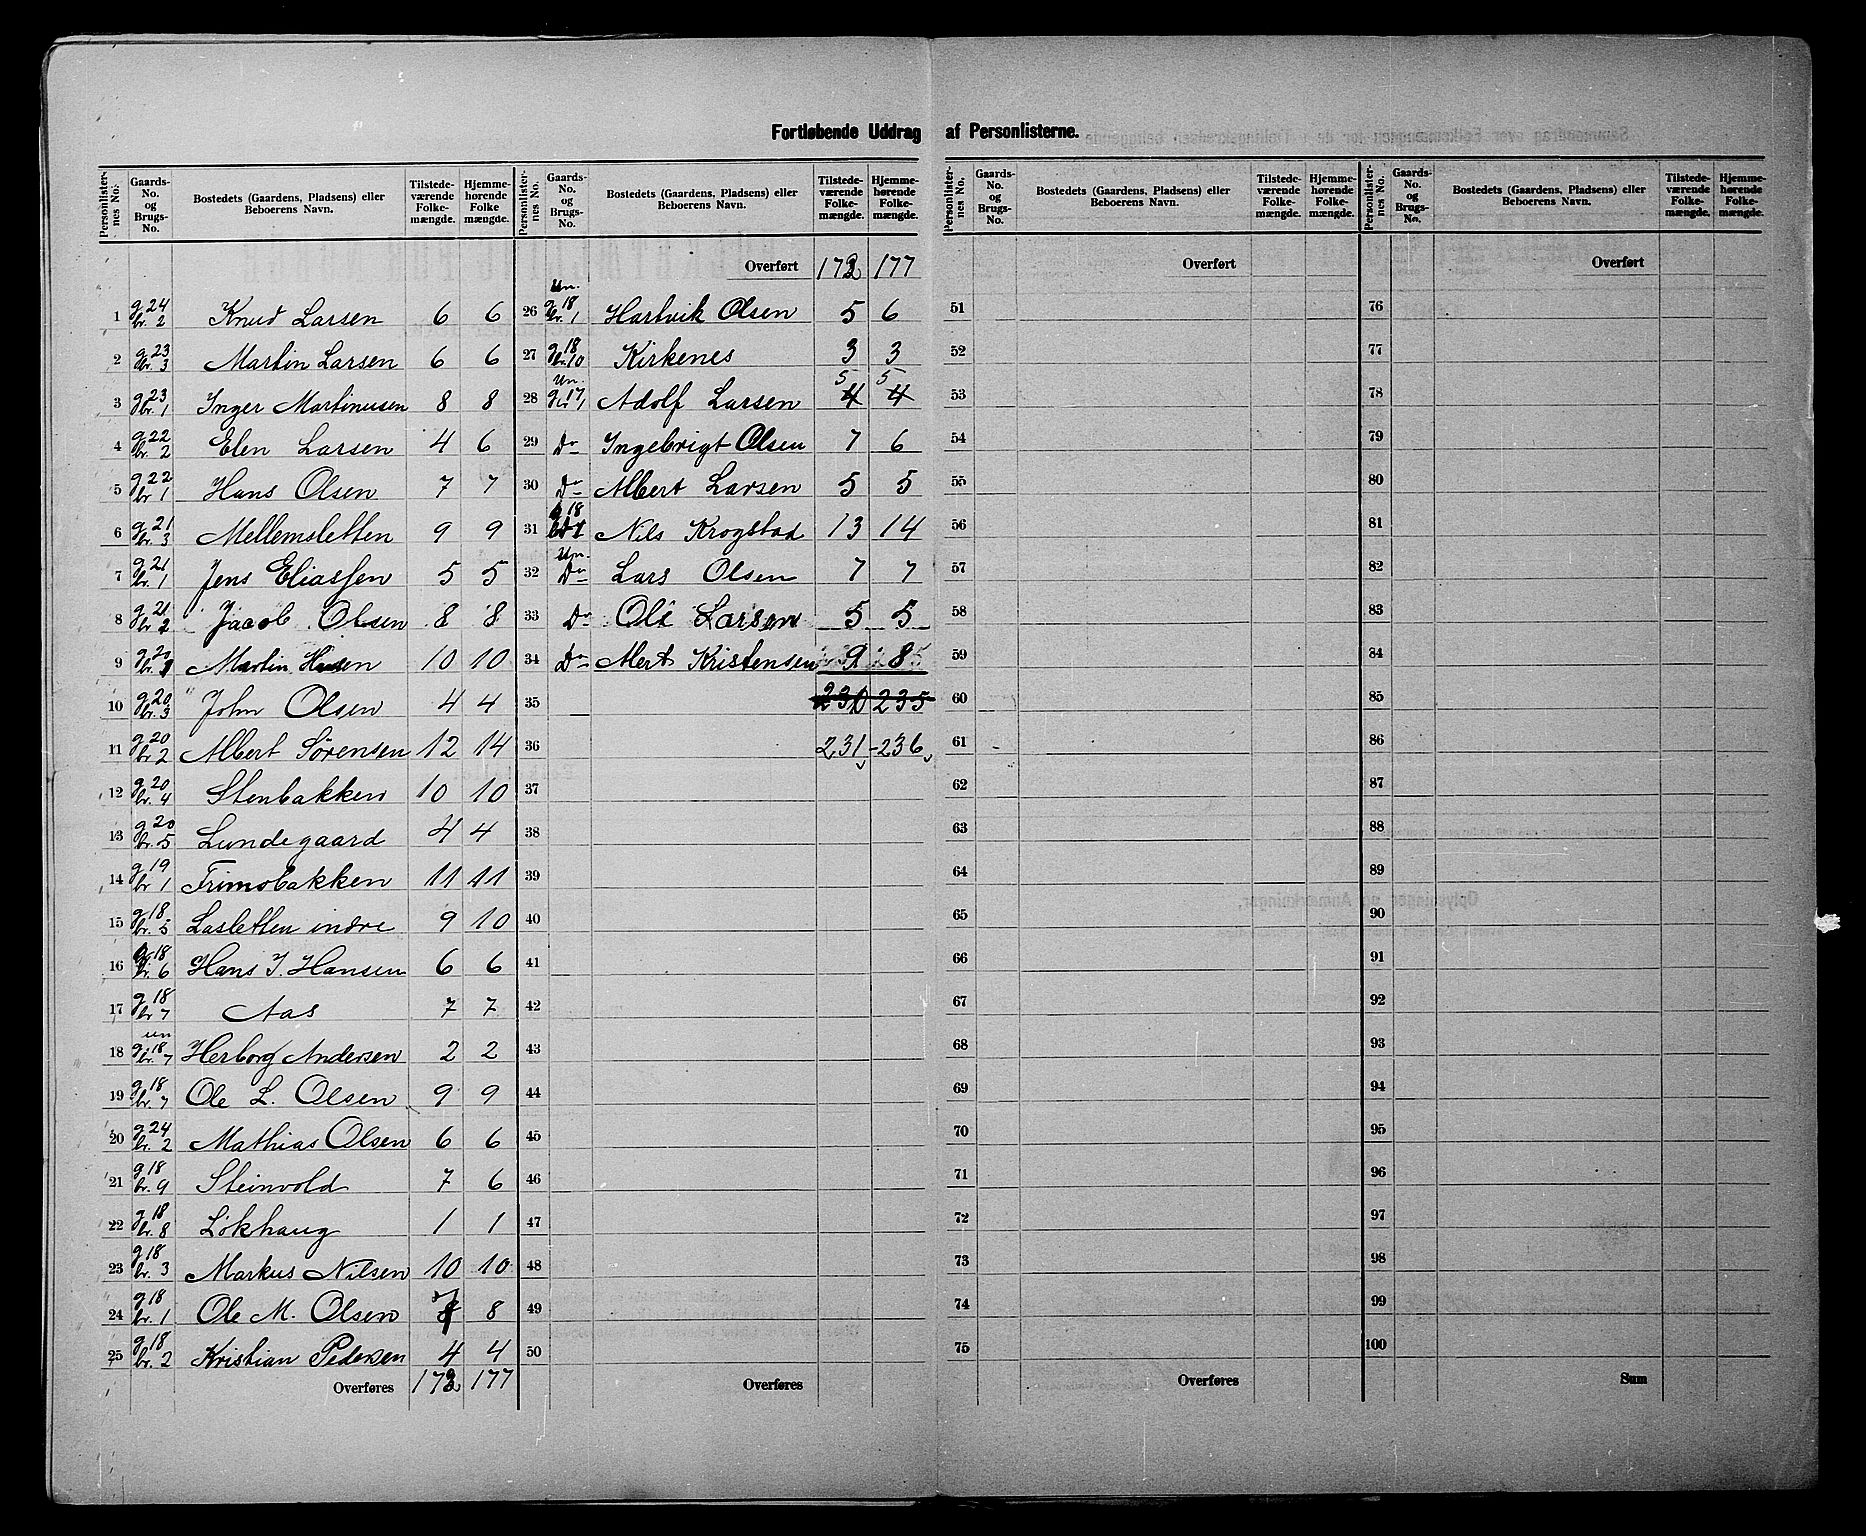 Fortløbende Uddrag af Personlisterne.
Personlister-nes No. | Gaards-No. og Brugs-No. | Bostedets (Gaardens, Pladsens) eller Beboerens Navn. | Tilstede-værende Folke-mængde. | Hjemme-hørende Folke mængde.
1 | g 24 br. 2 | Knud Larsen | 6 | 6
2 | g 23 br. 3 | Martin Larsen | 6 | 6
3 | g 23 br. 1 | Inger Martinusen | 8 | 8
4 | g 22 br. 2 | Elen Larsen | 4 | 6
5 | g 22 br 1 | Hans Olsen | 7 | 7
6 | g 21 br. 3 | Mellemsletten | 9 | 9
7 | g 21 br. 1 | Jens Eliassen | 5 | 5
8 | g 21 br 2 | Jacob Olsen | 8 | 8
9 | g 20 br. 1 | Martin Hansen | 10 | 10
10 | g 20 br. 3 | John Olsen | 4 | 4
11 | g 20 br 2 | Albert Sørensen | 12 | 14
12 | g 20 br. 4 | Stenbakken | 10 | 10
13 | g 20 br. 5 | Lundegaard | 4 | 4
14 | g 19 br 1 | Trimobakken | 11 | 11
15 | g 18 br. 5 | Lasletten indre | 9 | 10
16 | g 18 br. 6 | Hans J. Hansen | 6 | 6
17 | g 18 br 7 | Aas | 7 | 7
18 | un g. 18 br. 7 | Herborg Andersen | 2 | 2
19 | g 18 br. 7 | Ole L. Olsen | 9 | 9
20 | g 24 br. 2 | Mathias Olsen | 6 | 6
21 | g 18 br. 9 | Steinvold | 7 | 6
22 | g 18 br. 8 | Lökhaug | 1 | 1
23 | g 18 br. 3 | Markus Nilsen | 10 | 10
24 | g 18 br. 1 | Ole M. Olsen | 7 | 8
25 | g 18 br. 2 | Kristian Pedersen | 4 | 4
Overføres | 172 | 177
Personlister-nes No. | Gaards-No. og Brugs-No. | Bostedets (Gaardens, Pladsens) eller Beboerens Navn. | Tilstede-værende Folke-mængde. | Hjemme-hørende Folke-mængde.
Overført | 172 | 177
26 | Un. g 18 br. 1 | Hartvik Olsen | 5 | 6
27 | g 18 br. 10 | Kirkenes | 3 | 3
28 | Un. g 17 br. 1 | Adolf Larsen | 4 5 | 4 5
29 | Do | Ingebrigt Olsen | 7 | 6
30 | Do | Albert Larsen | 5 | 5
31 | g 18 br 1 | Nils Krogstad | 13 | 14
32 | Un. Do | Lars Olsen | 7 | 7
33 | Do | Ole Larsen | 5 | 5
34 | Do | Mert Kristensen | 9 | 8
35 | 230 | 235
36 | 231 | 236
37
38
39
40
41
42
43
44
45
46
47
48
49
50
Overføres
Personlister-nes No. | Gaards-No. og Brugs-No. | Bostedets (Gaardens, Pladsens) eller Beboerens Navn. | Tilstede-værende Folke-mængde. | Hjemme-hørende Folke-mængde.
Overført
51
52
53
54
55
56
57
58
59
60
61
62
63
64
65
66
67
68
69
70
71
72
73
74
75
Overføres
Personlister-nes No. | Gaards-No. og Brugs-No. | Bostedets (Gaardens, Pladsens) eller Beboerens Navn. | Tilstede-værende Folke-mængde. | Hjemme-hørende Folke-mængde.
Overført
76
77
78
79
80
81
82
83
84
85
86
87
88
89
90
91
92
93
94
95
96
97
98
99
100
Sum